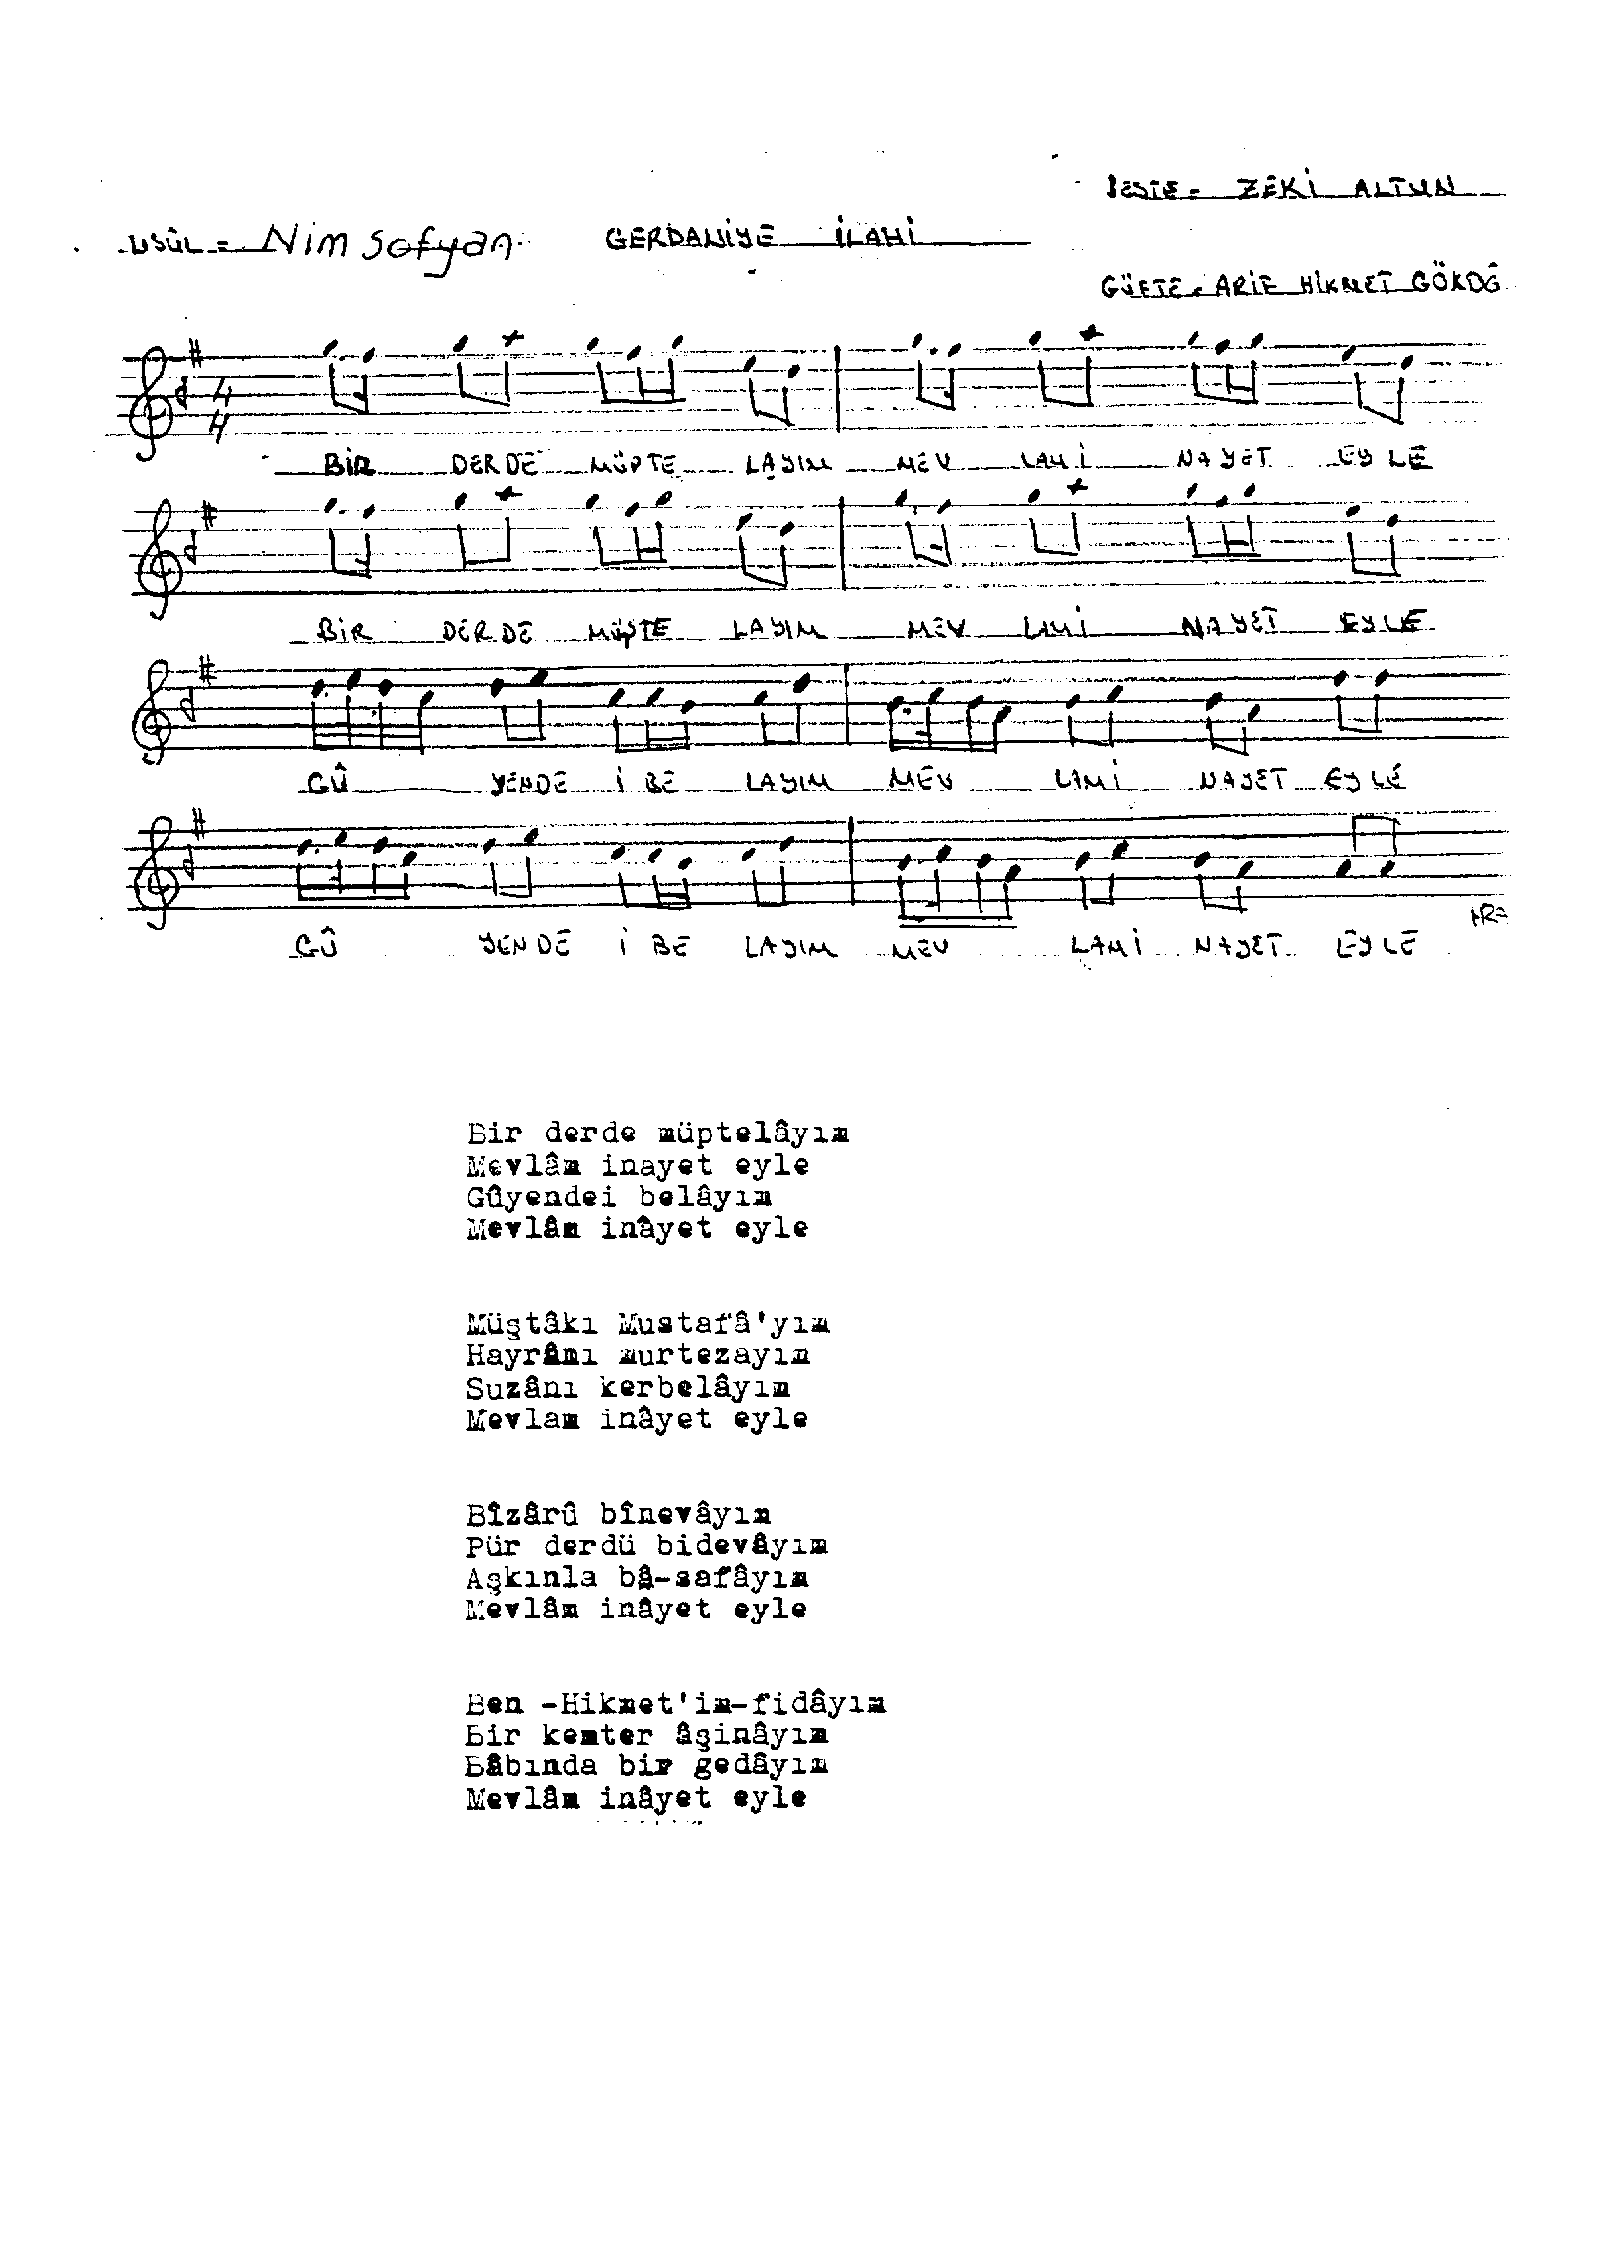 BESTE = ZEKİ ALTUN
USÛL = Nim Sofyan GERDANİYE İLAHİ
GÜFTE = ARİF HİKMET GÖKDĞ
4
4
BİR DERDE MÜPTE LAYIM MEV LAMİ NAYET EYLE
BİR DERDE MÜPTE LAYIM MEV LAMİ NAYET EYLE
GÛ YENDE İ BE LAYIM MEV LAMİ NAYET EYLE
GÛ YENDE İ BE LAYIM MEV LAMİ NAYET EYLE
Bir derde müptelâyım
Mevlâm inayet eyle
Gûyendei belâyım
Mevlâm inâyet eyle
Müştâkı Mustafâ'yım
Hayrânı murtezayım
Suzânı kerbelâyım
Mevlam inâyet eyle
Bîzârû bînevâyım
Pür derdü bidevâyım
Aşkınla bâ-safâyım
Mevlâm inâyet eyle
Ben -Hikmet'im-fidâyım
Bir kemter âşinâyım
Bâbında bir gedâyım
Mevlâm inâyet eyle